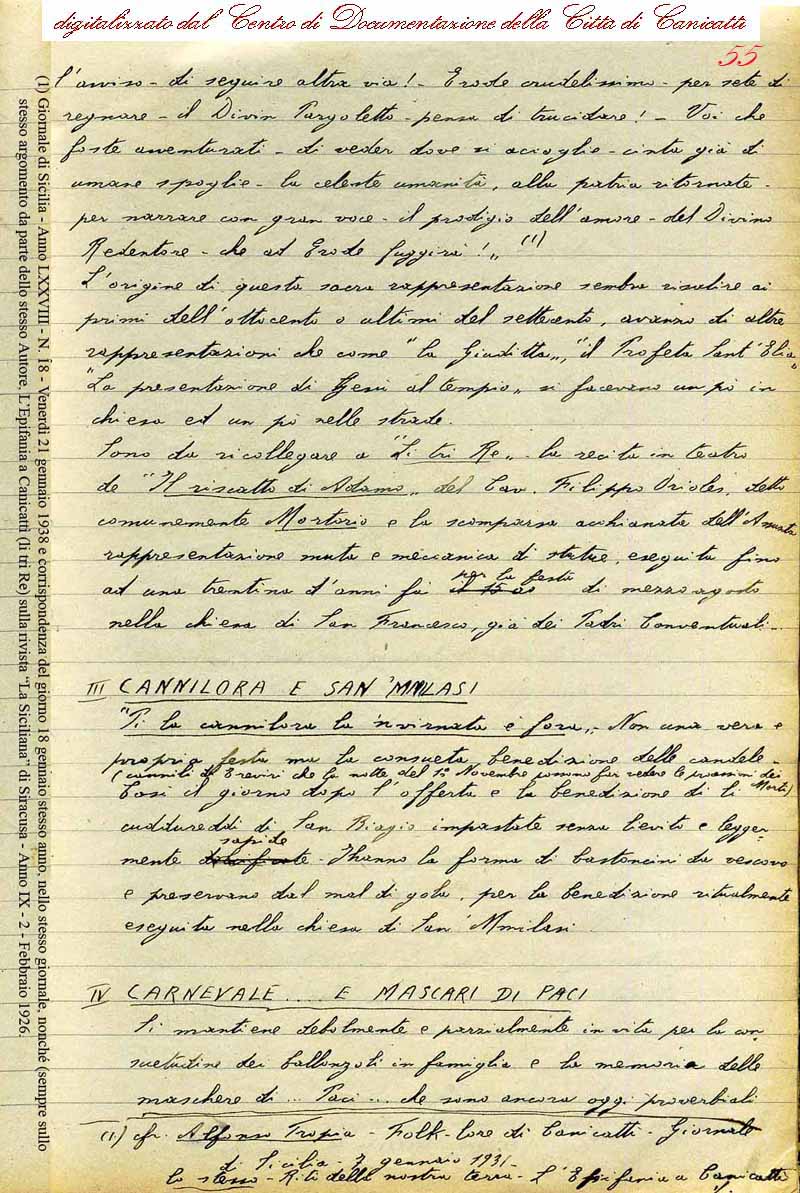 digitalizzato dal Centro di Documentazione della Città di Canicattì
55
l'avviso - di seguire altra via! - Erode crudelissimo - per sete di
regnare - il Divin Pargoletto - pensa di trucidare! - Voi che
foste avventurati - di veder dove si accoglie - cinta già di
umane spoglie - la celeste umanità, alla patria ritornate -
per narrare con gran voce - il prodigio dell'amore - del Divino
Redentore - che ad Erode fuggirà!„ (1)
L'origine di questa sacra rappresentazione sembra risalire ai
primi dell'ottocento o ultimi del settecento, avanzo di altre
rappresentazioni che come "la Giuditta„, "il Profeta Sant'Elia„
"La presentazione di Gesù al tempio„ si facevano un pò in
chiesa ed un pò nelle strade.
Sono da ricollegare a "Li tri Re„ la recita in teatro
de "Il riscatto di Adamo„ del Cav. Filippo Orioles, detto
comunemente Mortorio e la scomparsa acchianata dell'Assunta
rappresentazione muta e meccanica di statue, eseguita fino
ad una trentina d'anni fa per la festa di mezzo agosto
nella chiesa di San Francesco, già dei Padri Conventuali.
III CANNILORA E SAN 'MMLASI
"Pi la cannilora la 'nvirnata è fora„ - Non una vera e
propria festa ma la consueta benedizione delle candele -
(cannili di Treviri che la notte del 1° Novembre possono far vedere le prossimi dei Morti)
Così il giorno dopo l'offerta e la benedizione di li
cuddureddi di San Biagio impastate senza lievito e legger-
mente sapide - Hanno la forma di bastoncini da vescovo
e preservano dal mal di gola, per la benedizione ritualmente
eseguita nella chiesa di San 'Mmilasi.
IV CARNEVALE .... E MASCARI DI PACI
Si mantiene debolmente e parzialmente in vita per la con-
suetudine dei ballonzoli in famiglia e la memoria delle
maschere di ... Paci ... che sono ancora oggi proverbiali
(1) cfr. Alfonso Tropia - Folk-lore di Canicattì - Giornale
di Sicilia - 7 gennaio 1931 -
lo stesso - Riti della nostra terra - L'Epifania a Canicattì
(1) Giornale di Sicilia - Anno LXXVIII - N. 18 - Venerdì 21 gennaio 1938 e corrispondenza del giorno 18 gennaio stesso anno, nello stesso giornale, nonché (sempre sullo
stesso argomento da parte dello stesso Autore, L'Epifania a Canicattì (li tri Re) sulla rivista "La Siciliana" di Siracusa - Anno IX - 2 - Febbraio 1926.